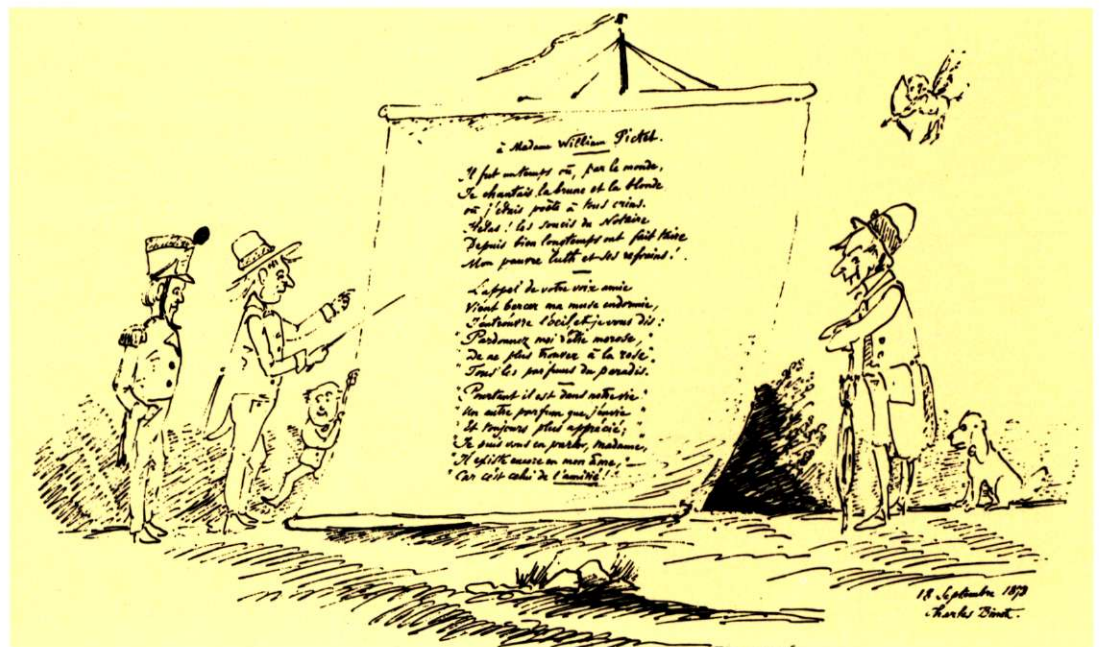 à Madame William Pictet.
Il fut un temps où, par le monde,
Je chantais la brune et la blonde
où j'étais poëte à tous crins.
Hélas ! les soucis du Notaire
Depuis bien longtemps ont fait taire
Mon pauvre luth et ses refrains !
L'appel de votre voix amie
Vient bercer ma muse endormie,
J'entrouvre l'œil, et je vous dis :
"Pardonnez moi d'être morose,"
"De ne plus trouver à la rose"
"Tous les parfums du paradis.
"Pourtant il est dans notre vie"
"Un autre parfum que j'envie"
"Et toujours plus apprécié;"
"Je puis vous en parler, Madame,"
"Il existe encore en mon âme,"
"Car c'est celui de l'amitié!"
18 Septembre 1873
Charles Binet.